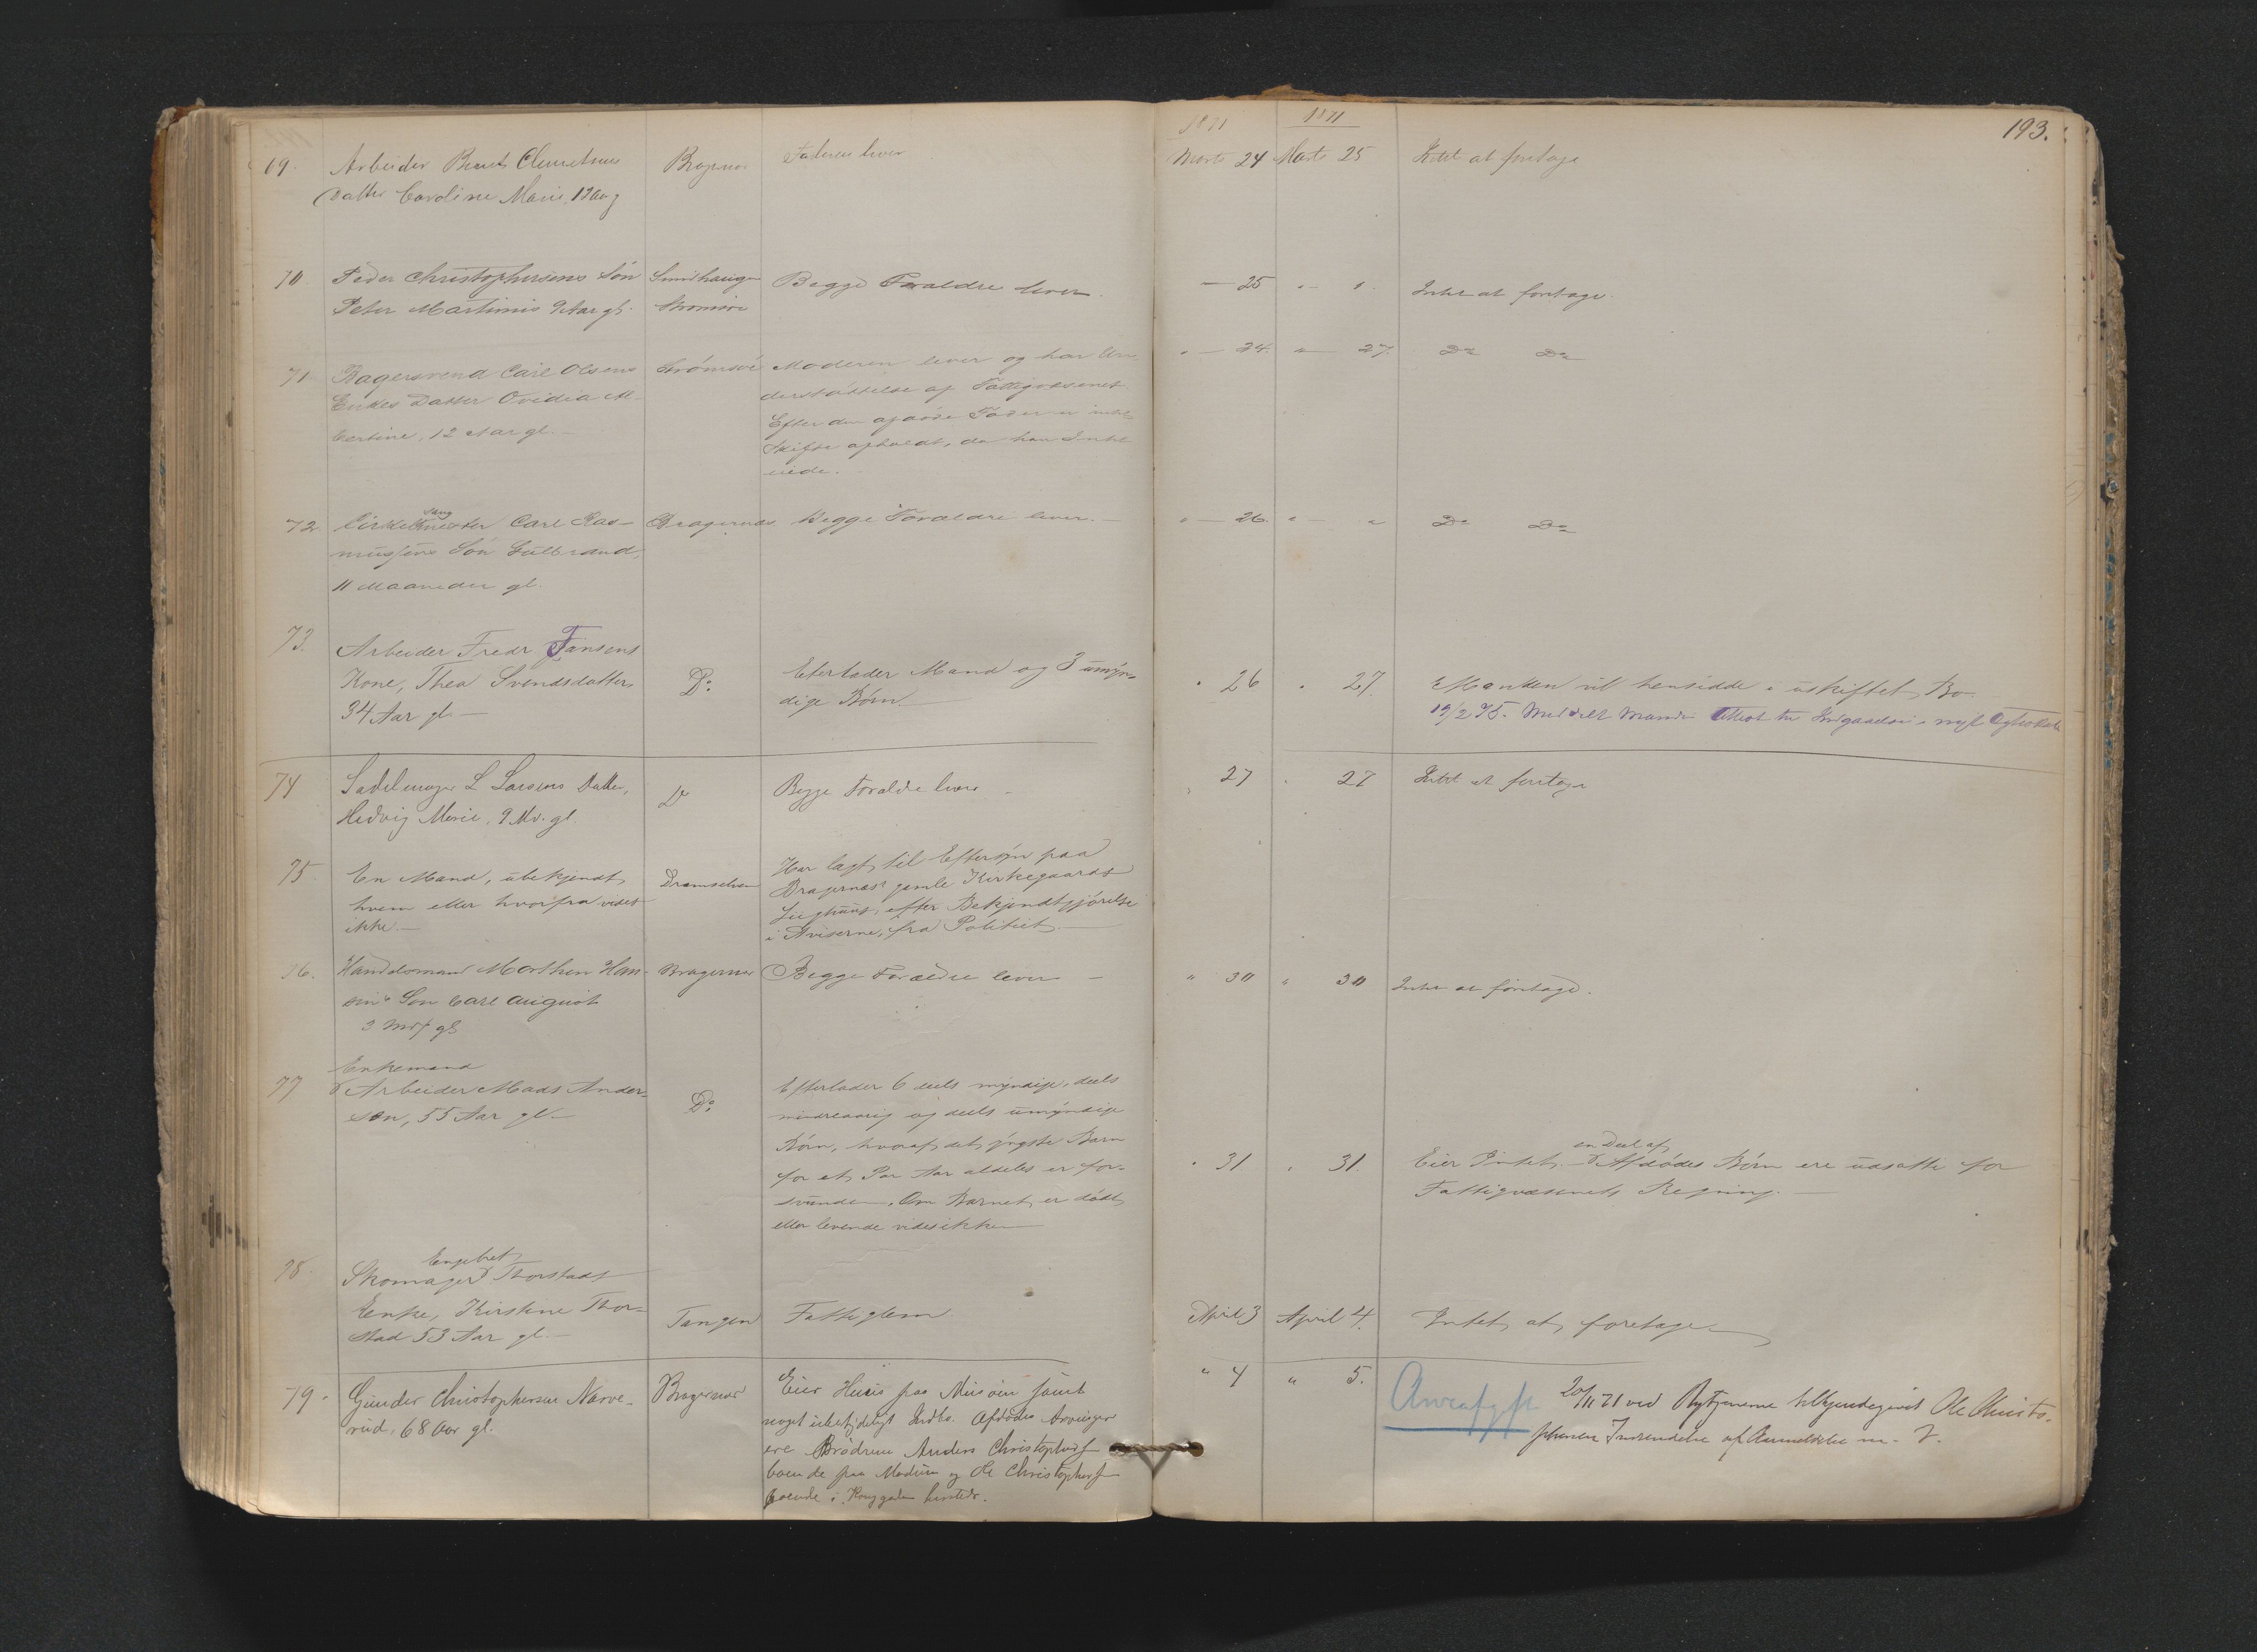 193.
1871 1871
69. Arbeider Bernt Clemetsens Bragnæs Faderen lever Marts 24 Marts 25 Intet at foretage
Datter Caroline Marie, 13 Aar g
70 Peder Christophersens Søn Smedhaugen Begge Forældre lever. — 25 " — " Intet at foretage.
Peter Martinius 9 Aar gl. Strømsøe
71 Bagersvend Carl Olsens Strømsöe Moderen lever og har Un- " — 24. " — 27. Do Do
Enkes Datter Ovidia Al- derstöttelse af Fattigvæsenet.
bertine, 12 Aar gl. — Efter den afdöde Fader er intet
Skifte afholdt, da han Intet
eiede.
72 Cirkelsaugmester Carl Ras- Bragernæs Begge Forældre lever. — " — 26. " — " Do Do
mussens Sön Gulbrand,
11 Maaneder gl.
73. Arbeider Fredr Jansens
Kone, Thea Svendsdatter Do Efterlader Mand og 3 umyn- " 26 " 27. Manden vil hensidde i uskiftet Bo
34 Aar gl — dige Børn. — 19/2 75. Meddelt Manden Attest til Indgaaelse i nyt Ægteskab
74 Sadelmager L Larsens Datter, Do Begge Forældre lever — " 27 " 27 Intet at foretage
Hedvig Marie, 9 Md. gl.
75 En Mand, ubekjendt, Dramselven Har lagt til Eftersyn paa
hvem eller hvorfra vides Bragernæs gamle Kirkegaards
ikke — Liighuus, efter Bekjendtgjörelse
i Aviserne, fra Politiet. —
76. Handelsmand Morthen Han- Bragernæs Begge Forældre lever — " 30 " 30 Intet at foretage.
sens Søn Carl August
3 Mdr gl
77 Enkemand
Arbeider Mads Ander- Do Efterlader 6 deels myndige, deels
sen, 55 Aar gl. — mindreaarig og deels umyndige
Börn, hvoraf det yngste Barn en Deel af
for et Par Aar aldeles er for- " 31 " 31. Eier Intet. — Afdödes Börn ere udsatte for
svunden. Om Barnet er dödt, Fattigvæsenets Regning. —
eller levende vides ikke —
78. Engebret
Skomager Thorstads
Enke, Kirstine Thor- Tangen Fattiglem. April 3 April 4. Intet at foretage —
stad 53 Aar gl. —
79. Gunder Christophersen Narve- Bragernæs Eier Huus paa Muusöen samt " 4 " 5. Arveafgift 20/11 71 ved Rytterne tilkjendegivet Ole Christo-
rud, 68 Aar gl. noget ubetydeligt Indbo. Afdødes Arvinger phersen Indsendelse af Anmeldelse m. V.
ere Brødrene Anders Christophers
boende paa Modum og Ole Christophers
boende i Konggaden hersteds.